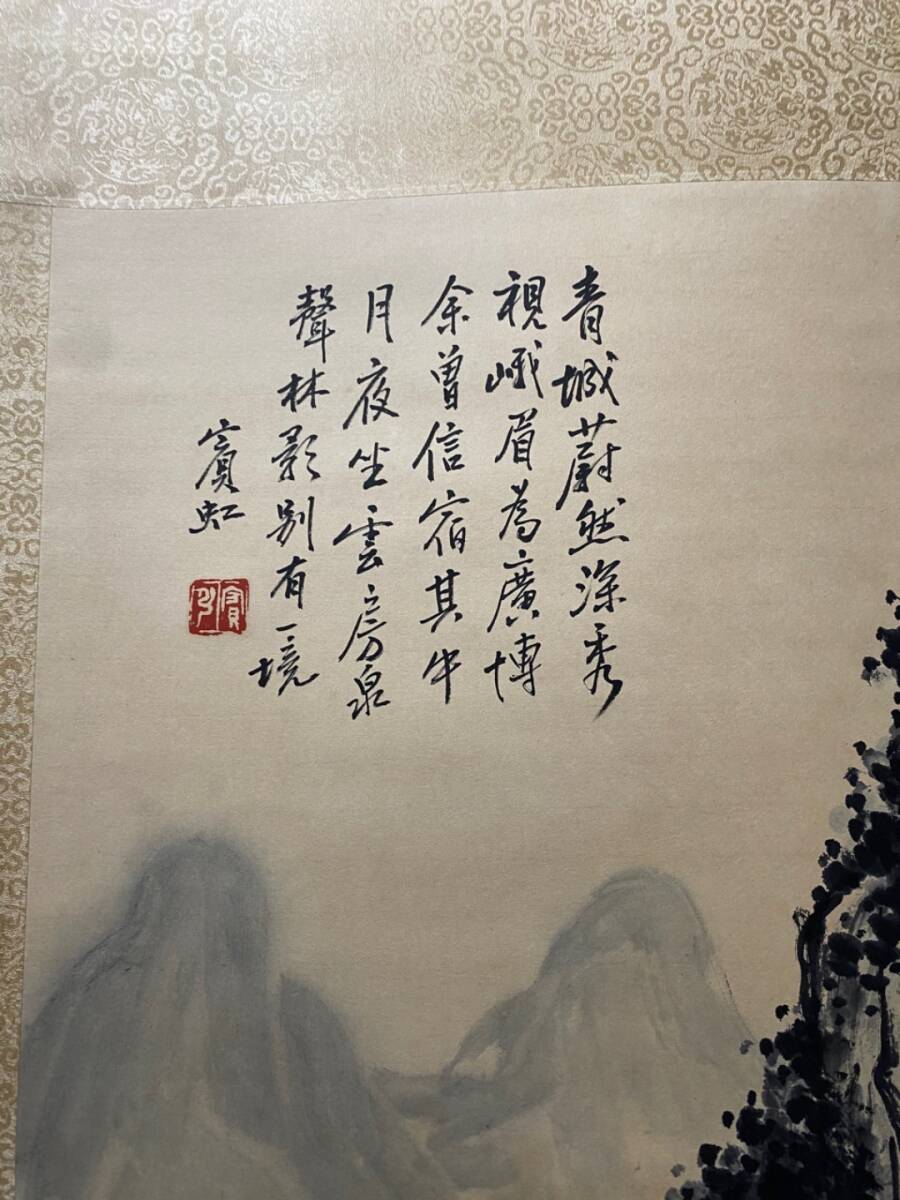 青城蔚然深秀
視峨眉為廣博
余曾信宿其中
月夜坐雲房泉
聲林影別有一境
賓虹